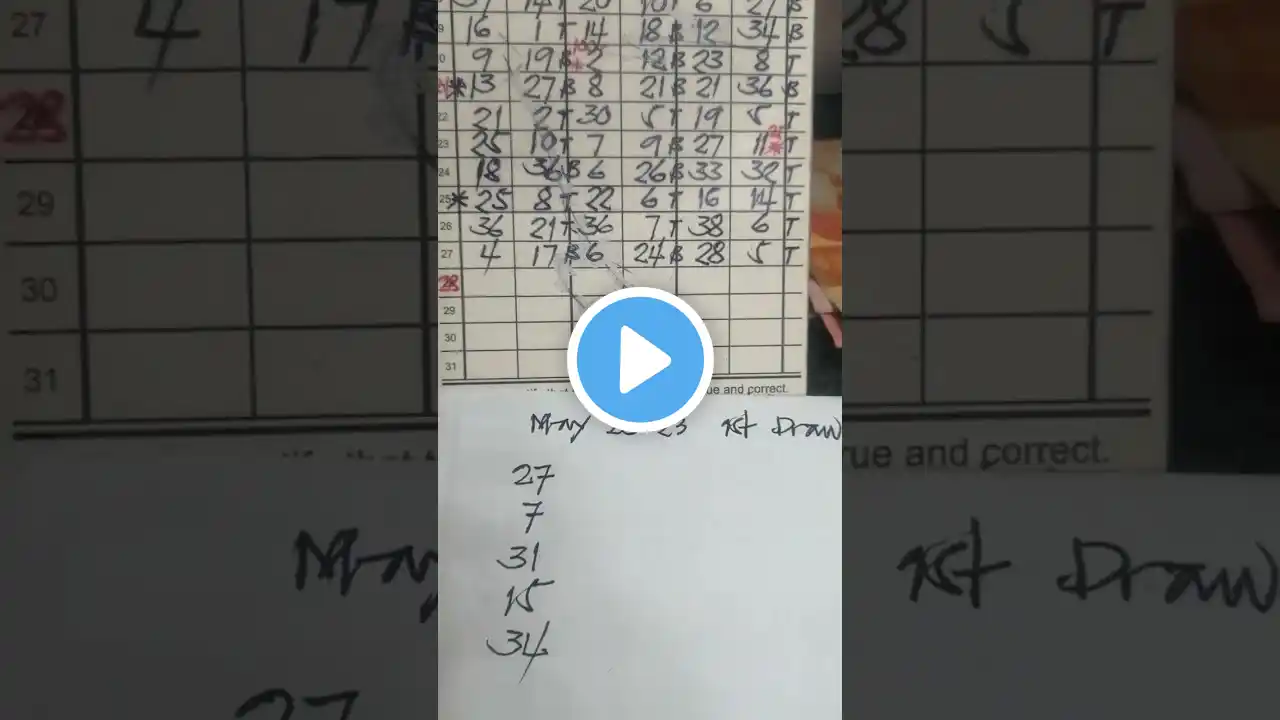 16 1 T 14 18 B 12 34 B
9 19 B 2 12 B 23 8 T
* 13 27 B 8 21 B 21 36 B
22 21 2 T 30 5 T 19 5 T
23 25 10 T 7 9 B 27 11 * T
24 18 36 B 6 26 B 33 32 T
25 * 25 8 T 22 6 T 16 14 T
26 36 21 T 36 7 T 38 6 T
27 4 17 B 6 24 B 28 5 T
28
29
30
31
ue and correct.
May 1st Draw
27
7
31
15
34